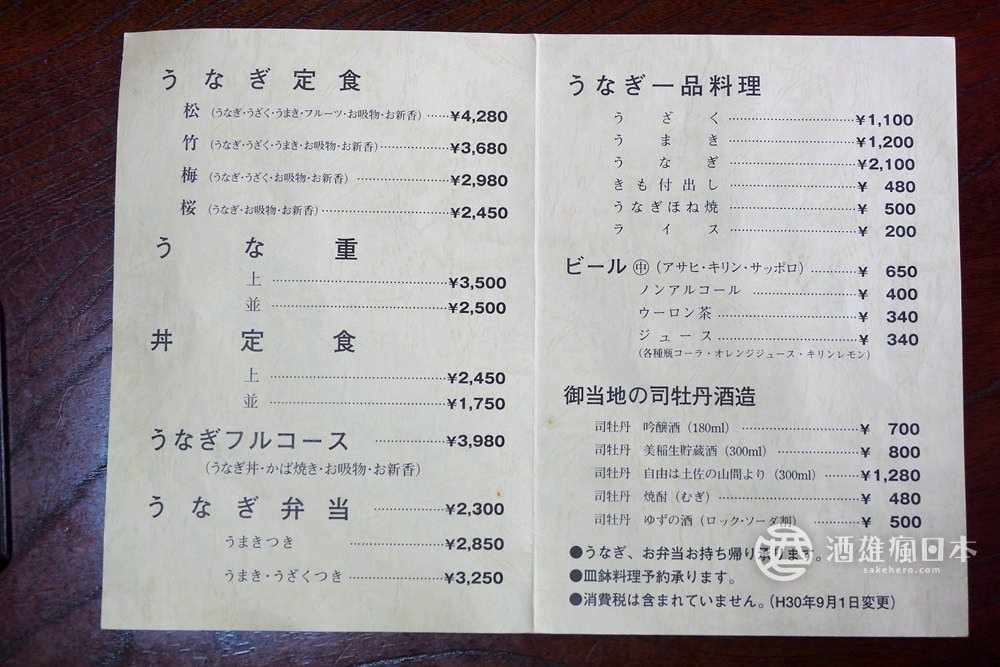 うなぎ定食
松（うなぎ・うざく・うまき・フルーツ・お吸物・お新香）……¥4,280
竹（うなぎ・うざく・うまき・お吸物・お新香）……¥3,680
梅（うなぎ・うざく・お吸物・お新香）……¥2,980
桜（うなぎ・お吸物・お新香）……¥2,450
うな重
上……¥3,500
並……¥2,500
丼定食
上……¥2,450
並……¥1,750
うなぎフルコース……¥3,980
（うなぎ丼・かば焼き・お吸物・お新香）
うなぎ弁当……¥2,300
うまきつき……¥2,850
うまき・うざくつき……¥3,250
うなぎ一品料理
うざく……¥1,100
うまき……¥1,200
うなぎ……¥2,100
きも付出し……¥480
うなぎほね焼……¥500
ライス……¥200
ビール㊥（アサヒ・キリン・サッポロ）……¥650
ノンアルコール……¥400
ウーロン茶……¥340
ジュース……¥340
（各種瓶コーラ・オレンジジュース・キリンレモン）
御当地の司牡丹酒造
司牡丹 吟醸酒（180ml）……¥700
司牡丹 美稲生貯蔵酒（300ml）……¥800
司牡丹 自由は土佐の山間より（300ml）……¥1,280
司牡丹 焼酎（むぎ）……¥480
司牡丹 ゆずの酒（ロック・ソーダ割）……¥500
●うなぎ、お弁当お持ち帰り承ります。
●皿鉢料理予約承ります。
●消費税は含まれていません。（H30年9月1日変更）
酒雄瘋日本
sakehero.com